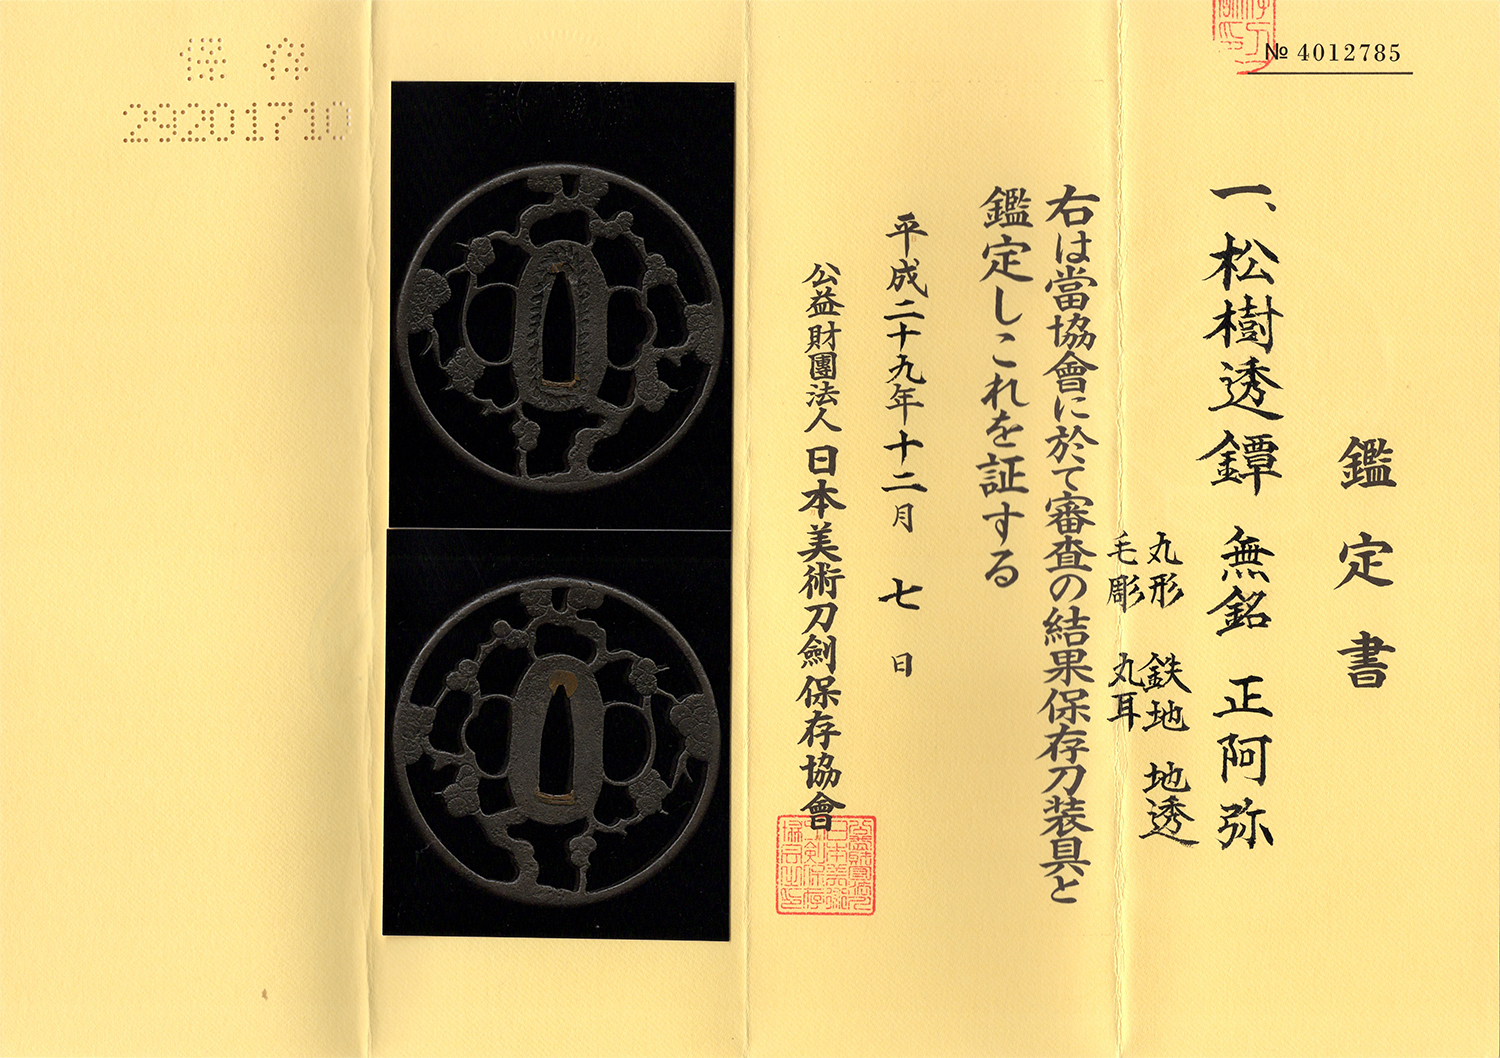 № 4012785
鑑定書
一、松樹透鐔 無銘 正阿弥
丸形 鉄地 地透
毛彫 丸耳
右は當協會に於て審査の結果保存刀装具と
鑑定しこれを証する
平成二十九年十二月 七 日
公益財團法人 日本美術刀劍保存協會
保存
29201710